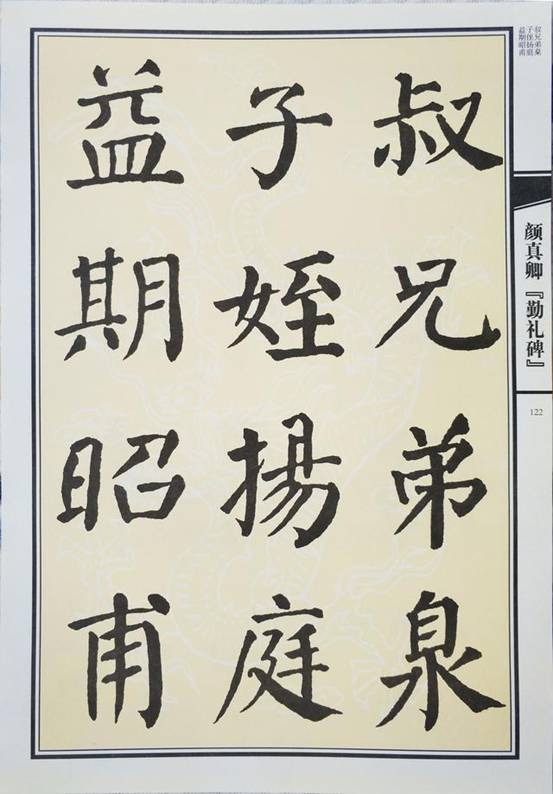 叔兄弟泉
子姪揚庭
益期昭甫
叔兄弟泉
子侄扬庭
益期昭甫
颜真卿『勤礼碑』
122